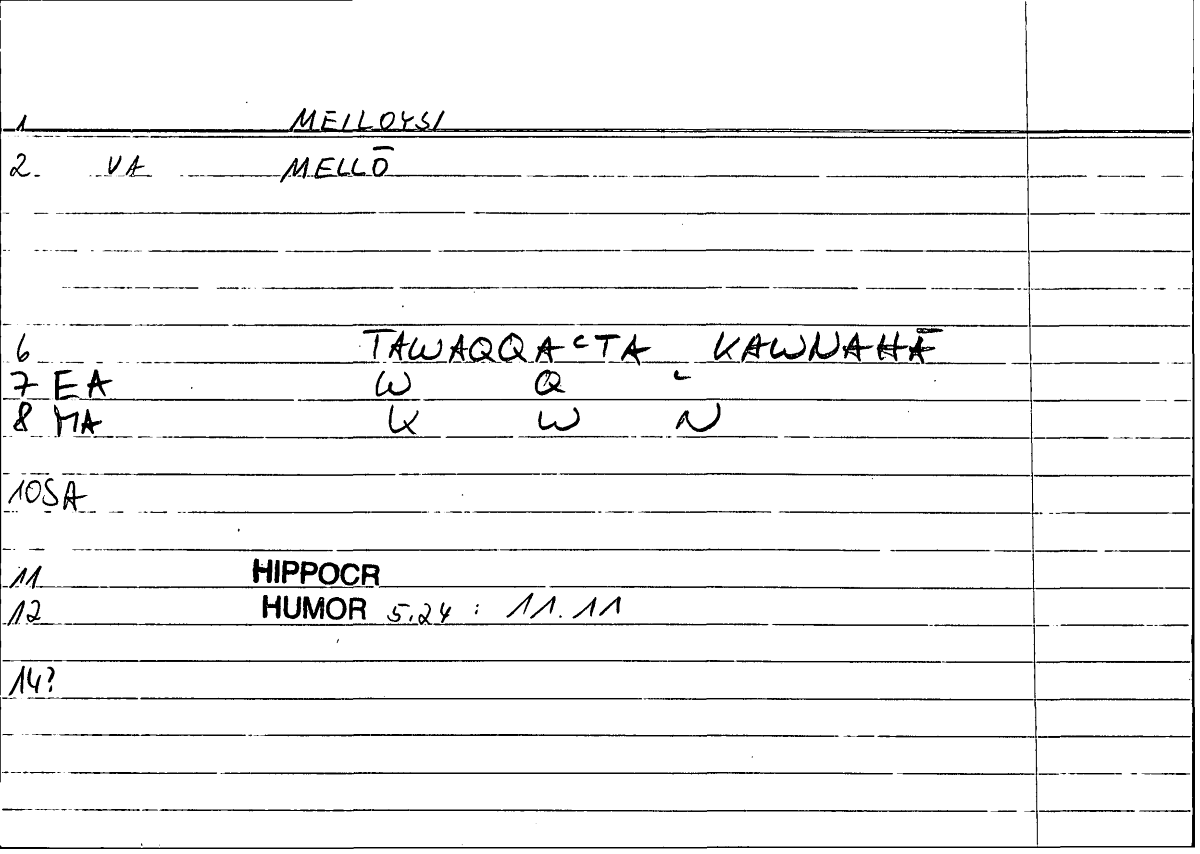 1 MELLOYSI
2. VA MELLŌ
6 TAWAQQAʿTA KAWNAHĀ
7 EA W Q ʿ
8 MA K W N
10 SA
11 HIPPOCR
12 HUMOR 5.24 : 11.11
14?